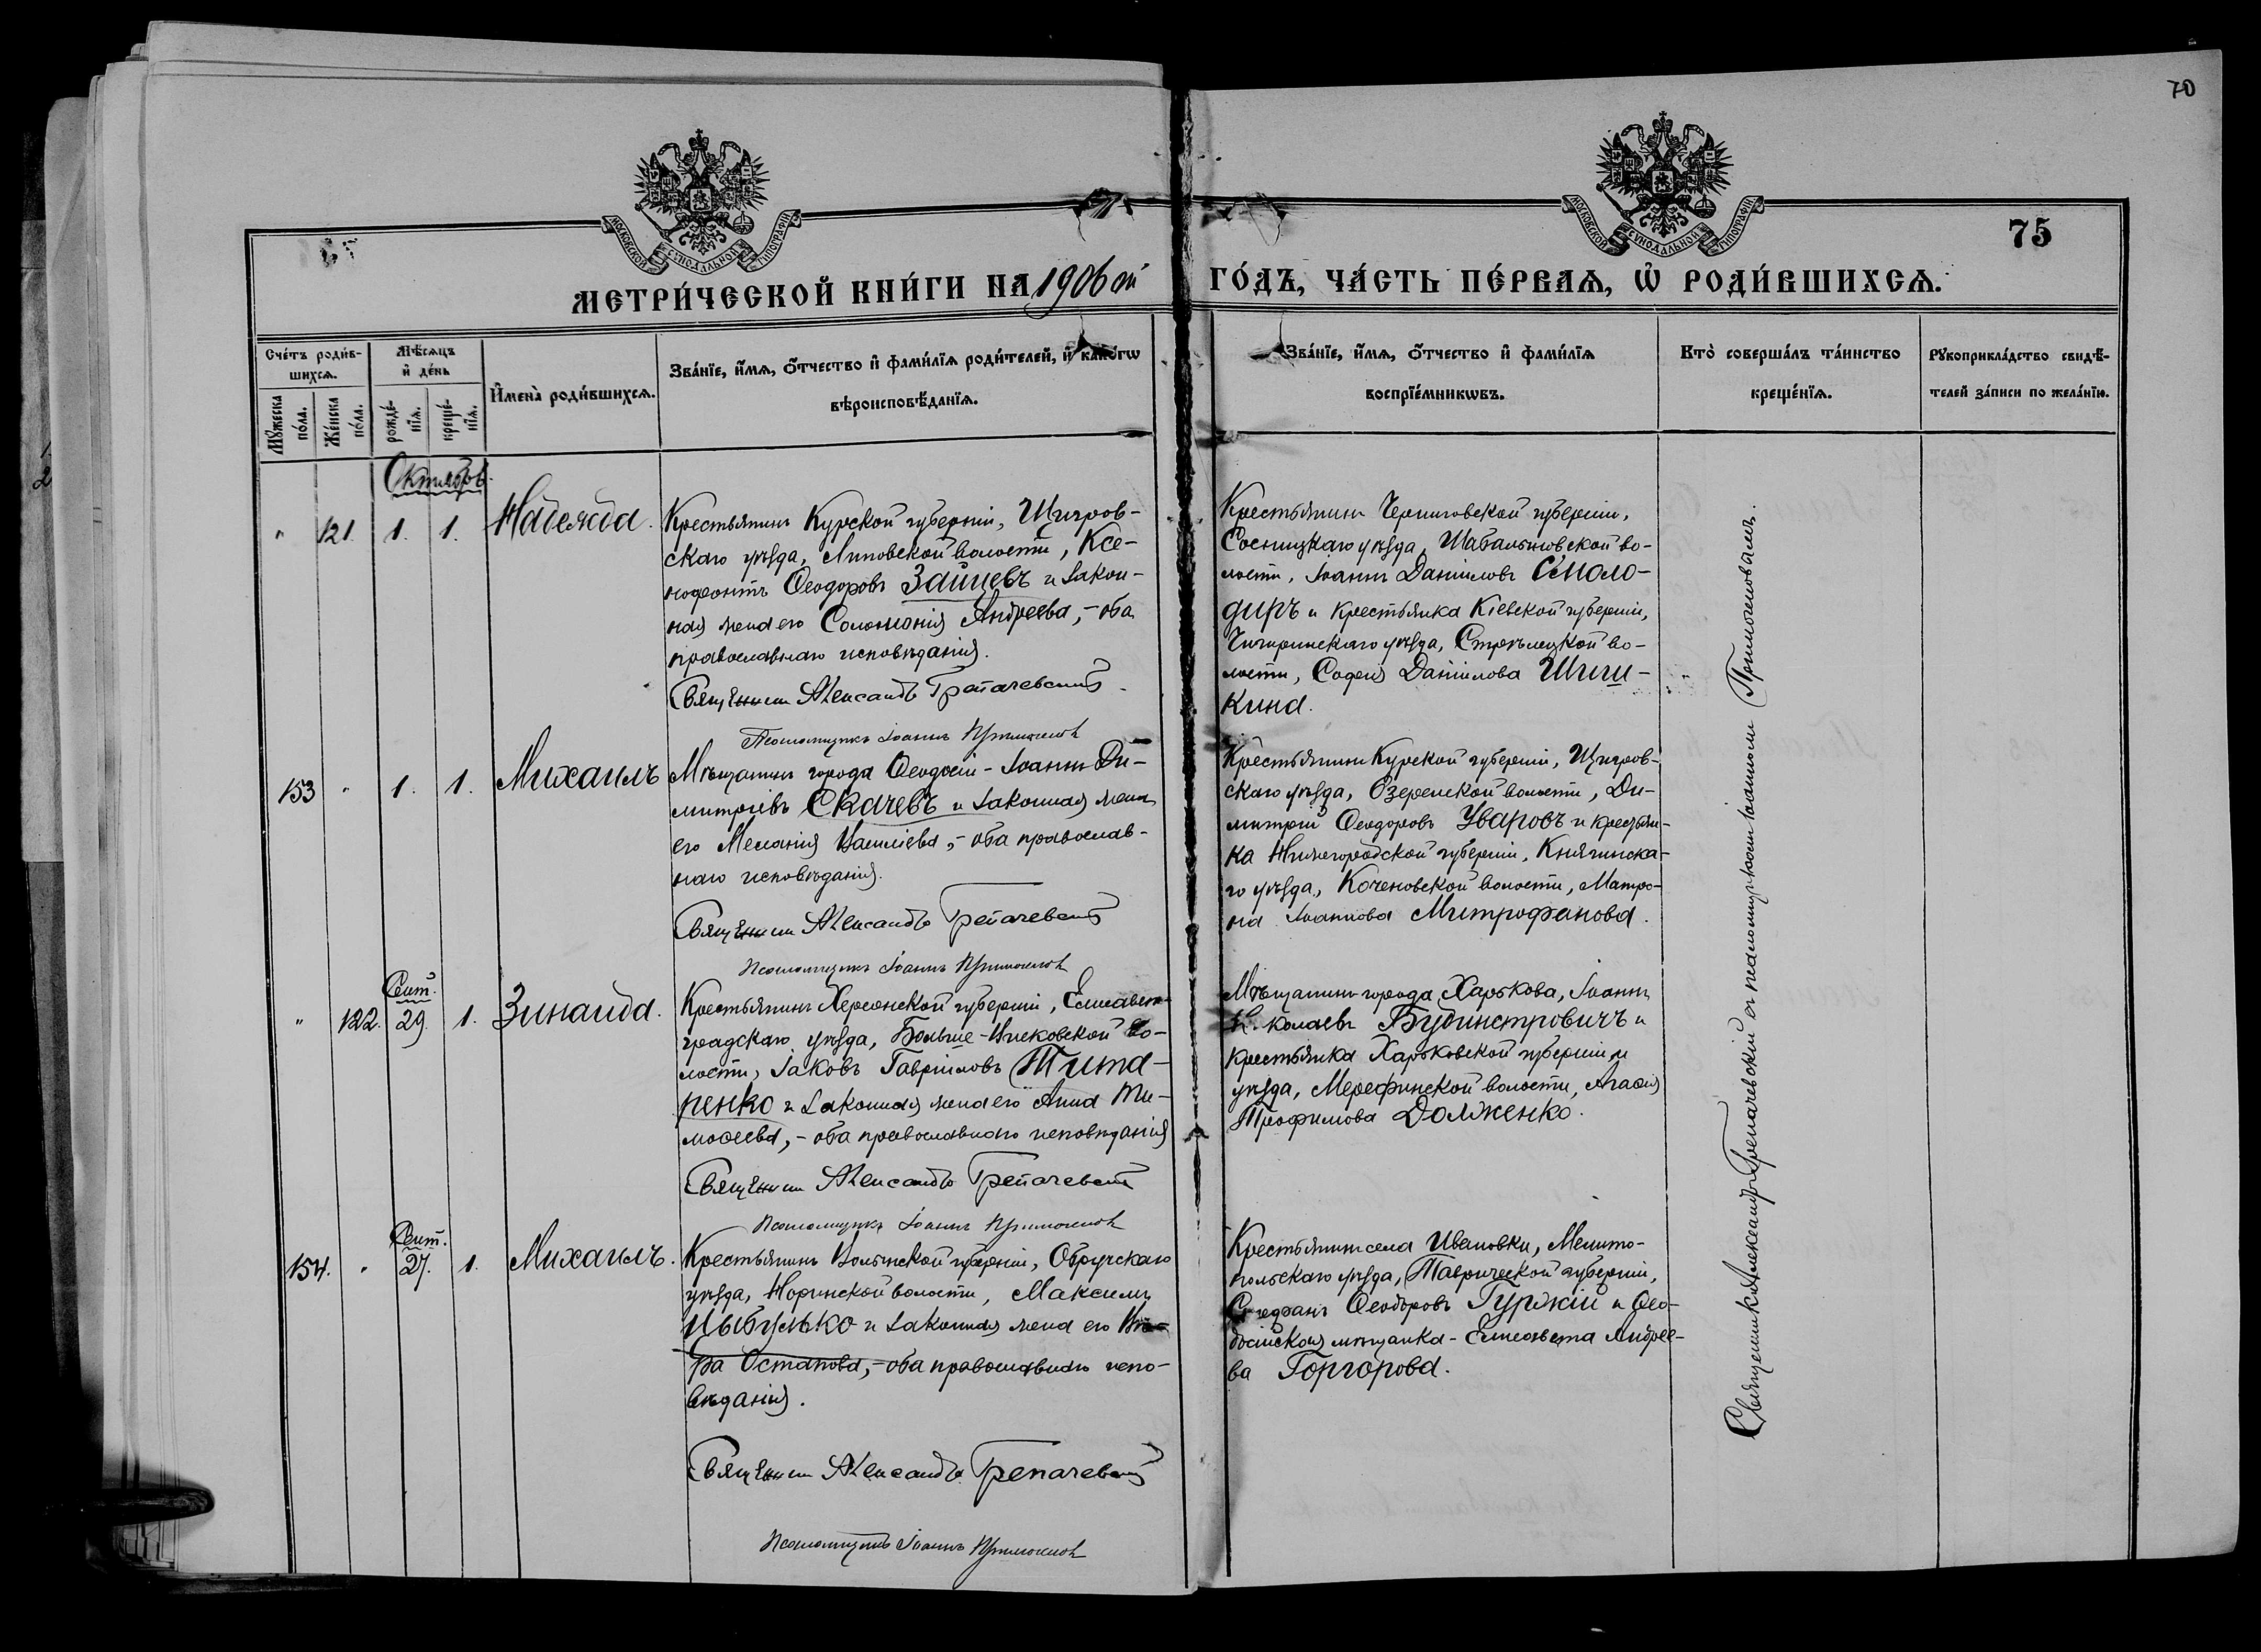 70
75
МОСКОВСКОЙ СѴНОДАЛЬНОЙ ТИПОГРАФІИ
МОСКОВСКОЙ СѴНОДАЛЬНОЙ ТИПОГРАФІИ
МЕТРИ́ЧЕСКОЙ КНИ́ГИ НА 1906 ой ГО́ДЪ, ЧА́СТЬ ПЕ́РВАѦ, Ѡ҆ РОДИ́ВШИХСѦ.
Сче́тъ роди́в-
шихсѧ.
Мꙋ́жеска по́ла.
Же́нска по́ла.
Мѣ́сѧцъ и҆ де́нь
рожде́-нїѧ.
креще́-нїѧ.
И҆мена̀ роди́вшихсѧ.
Зва́нїе, и҆́мѧ, ѻ҆́тчество и҆ фами́лїѧ роди́телей, и҆ како́гѡ
вѣроисповѣ́данїѧ.
Зва́нїе, и҆́мѧ, ѻ҆́тчество и҆ фами́лїѧ
воспрїе́мникѡвъ.
Кто̀ соверша́лъ та́инство
креще́нїѧ.
Рꙋкоприкла́дство свидѣ́-
телей за́писи по жела́нїю.
Октябрь.
" 121. 1. 1. Надежда.
Крестьянинъ Курской губерніи, Щигров-
скаго уѣзда, Липовской волости, Ксе-
нофонтъ Ѳеодоровъ Зайцевъ и закон-
ная жена его Соломонія Андреева, - оба
православнаго исповѣданія.
Священникъ Александръ Грепачевскій
Псаломщикъ Іоаннъ Примогеновъ
Крестьянинъ Черниговской губерніи,
Сосницкаго уѣзда, Шабалиновской во-
лости, Іоаннъ Даніиловъ Смоло-
диръ и крестьянка Кіевской губерніи,
Чигиринскаго уѣзда, Стрѣлецкой во-
лости, Софія Даніилова Шиш-
кина.
153 " 1. 1. Михаилъ
Мѣщанинъ города Ѳеодосіи - Іоаннъ Ди-
митріевъ Скачевъ и законная жена
его Меланія Василіева, - оба православ-
наго исповѣданія.
Священникъ Александръ Грепачевскій
Псаломщикъ Іоаннъ Примогеновъ
Крестьянинъ Курской губерніи, Щигров-
скаго уѣзда, Озеренской волости, Ди-
митрій Ѳеодоровъ Уваровъ и крестьян-
ка Нижегородской губерніи, Княгининска-
го уѣзда, Коченовской волости, Матро-
на Іоаннова Митрофанова.
Сент.
" 122. 29. 1. Зинаида.
Крестьянинъ Херсонской губерніи, Елисавет-
градскаго уѣзда, Больше-Висковской во-
лости, Іаковъ Гавріиловъ Тита-
ренко и законная жена его Анна Ти-
моѳеева, - оба православнаго исповѣданія
Священникъ Александръ Грепачевскій
Псаломщикъ Іоаннъ Примогеновъ
Мѣщанинъ города Харькова, Іоаннъ
Николаевъ и
крестьянка Харьковской губерніи и
уѣзда, Мерефинской волости, Агаѳія
Трофимова Долженко.
Сент.
154. " 27. 1. Михаилъ.
Крестьянинъ Волынской губерніи, Овручскаго
уѣзда, Норинской волости, Максимъ
Цыбулько и законная жена его Вѣ-
ра Остапова, - оба православнаго испо-
вѣданія.
Священникъ Александръ Грепачевскій
Псаломщикъ Іоаннъ Примогеновъ
Крестьянинъ села Ивановки, Мелито-
польскаго уѣзда, Таврической губерніи,
Стефанъ Ѳеодоровъ Гуржій и Ѳео-
досійская мѣщанка - Елисавета Андрее-
ва Горгорова.
Священникъ Александръ Грепачевскій съ псаломщикомъ Іоанномъ Примогеновымъ.